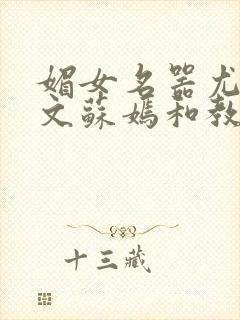 媚女名器尤
文蘇媽和教
十三藏